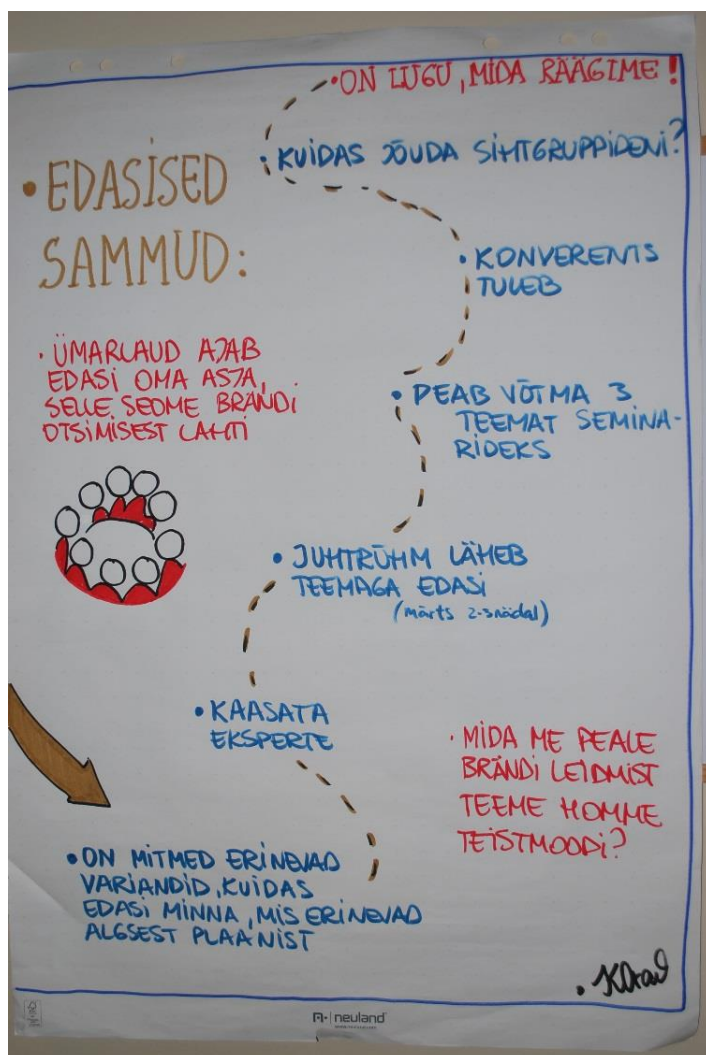 • ON LUGU, MIDA RÄÄGIME!
• KUIDAS JÕUDA SIHTGRUPPIDENI?
• EDASISED
SAMMUD:
• KONVERENTS
TULEB
• ÜMARLAUD AJAB
EDASI OMA ASJA,
SELLE SEOME BRÄNDI
OTSIMISEST LAHTI
• PEAB VÕTMA 3
TEEMAT SEMINA-
RIDEKS
• JUHTRÜHM LÄHEB
TEEMAGA EDASI
(märts 2-3nädal)
• KAASATA
EKSPERTE
• MIDA ME PEALE
BRÄNDI LEIDMIST
TEEME HOMME
TEISTMOODI?
• ON MITMED ERINEVAD
VARIANDID, KUIDAS
EDASI MINNA, MIS ERINEVAD
ALGSEST PLAANIST
neuland